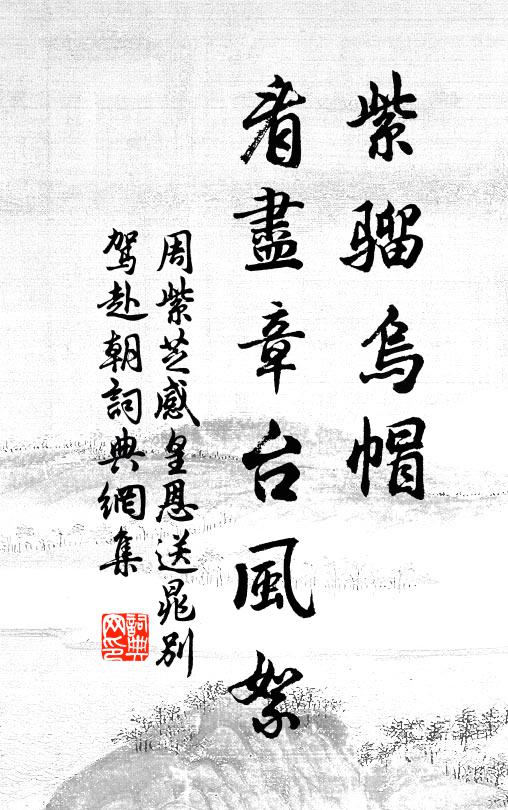 紫骝烏帽
看盡章台風絮
周紫芝感皇恩送晁别
驾赴朝詞典網集
詞典网印